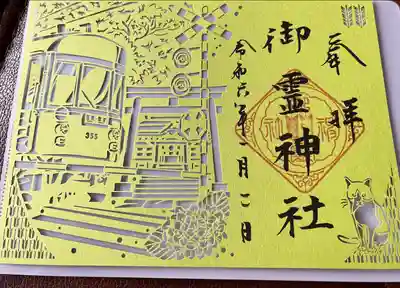 奉拝
御霊神社
令和六年一月一日
355